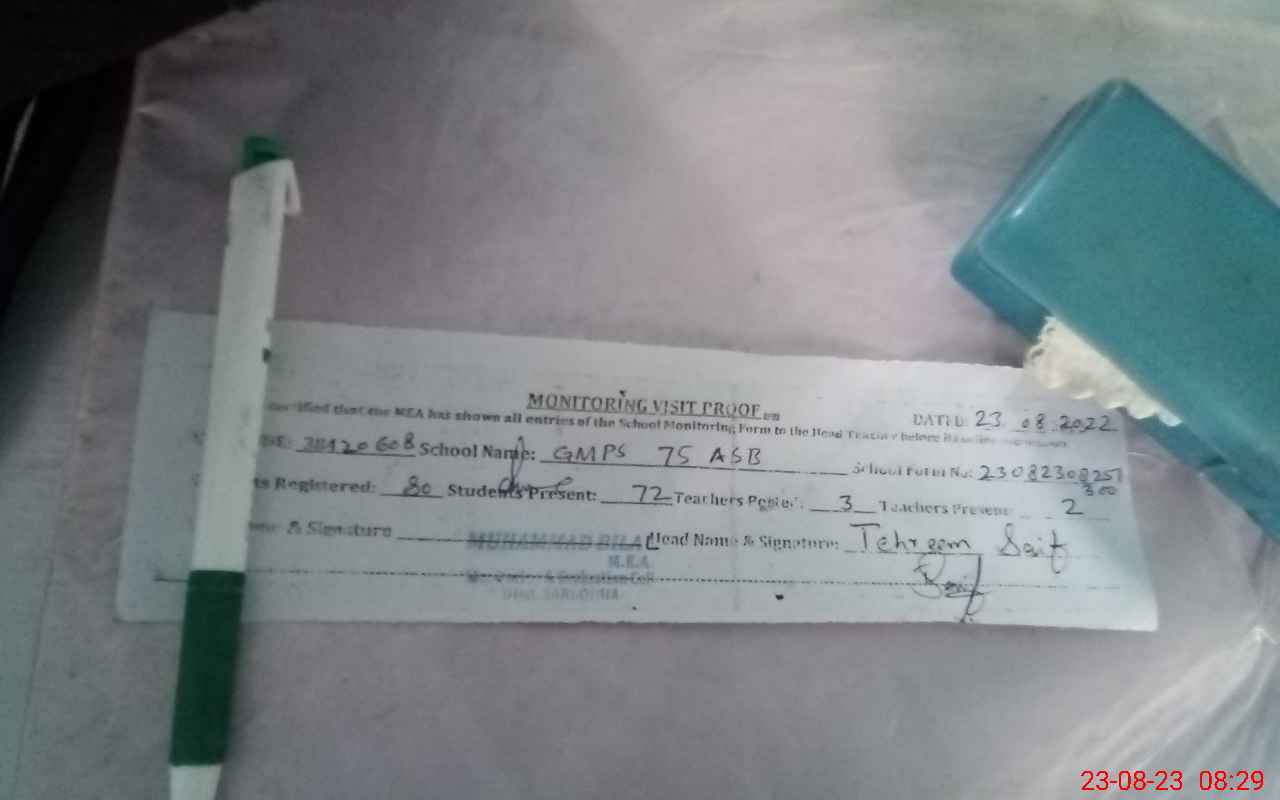 MONITORING VISIT PROOF
DATED: 23.08.2022
certified that the MEA has shown all entries of the School Monitoring Form to the Head Teacher before
School Name: GMPS 75 ASB School Form No: 23082308257
300
ts Registered: 80 Students Present: 72 Teachers Posted: 3 Teachers Present: 2
& Signature MUHAMMAD BILAL Head Name & Signature: Tehreem Saif
M.E.A.
Monitoring & Evaluation Cell
Distt. SARGODHA
23-08-23 08:29